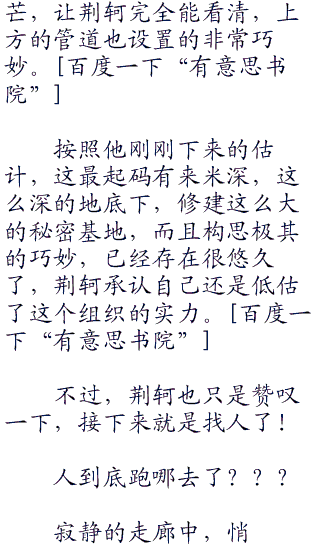 芒，让荆轲完全能看清，上
方的管道也设置的非常巧
妙。[百度一下“有意思书
院”]
按照他刚刚下来的估
计，这最起码有来米深，这
么深的地底下，修建这么大
的秘密基地，而且构思极其
的巧妙，已经存在很悠久
了，荆轲承认自己还是低估
了这个组织的实力。[百度一
下“有意思书院”]
不过，荆轲也只是赞叹
一下，接下来就是找人了！
人到底跑哪去了？？？
寂静的走廊中，悄